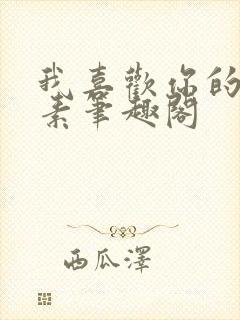 我喜歡你的
素筆趣閣
西瓜澤